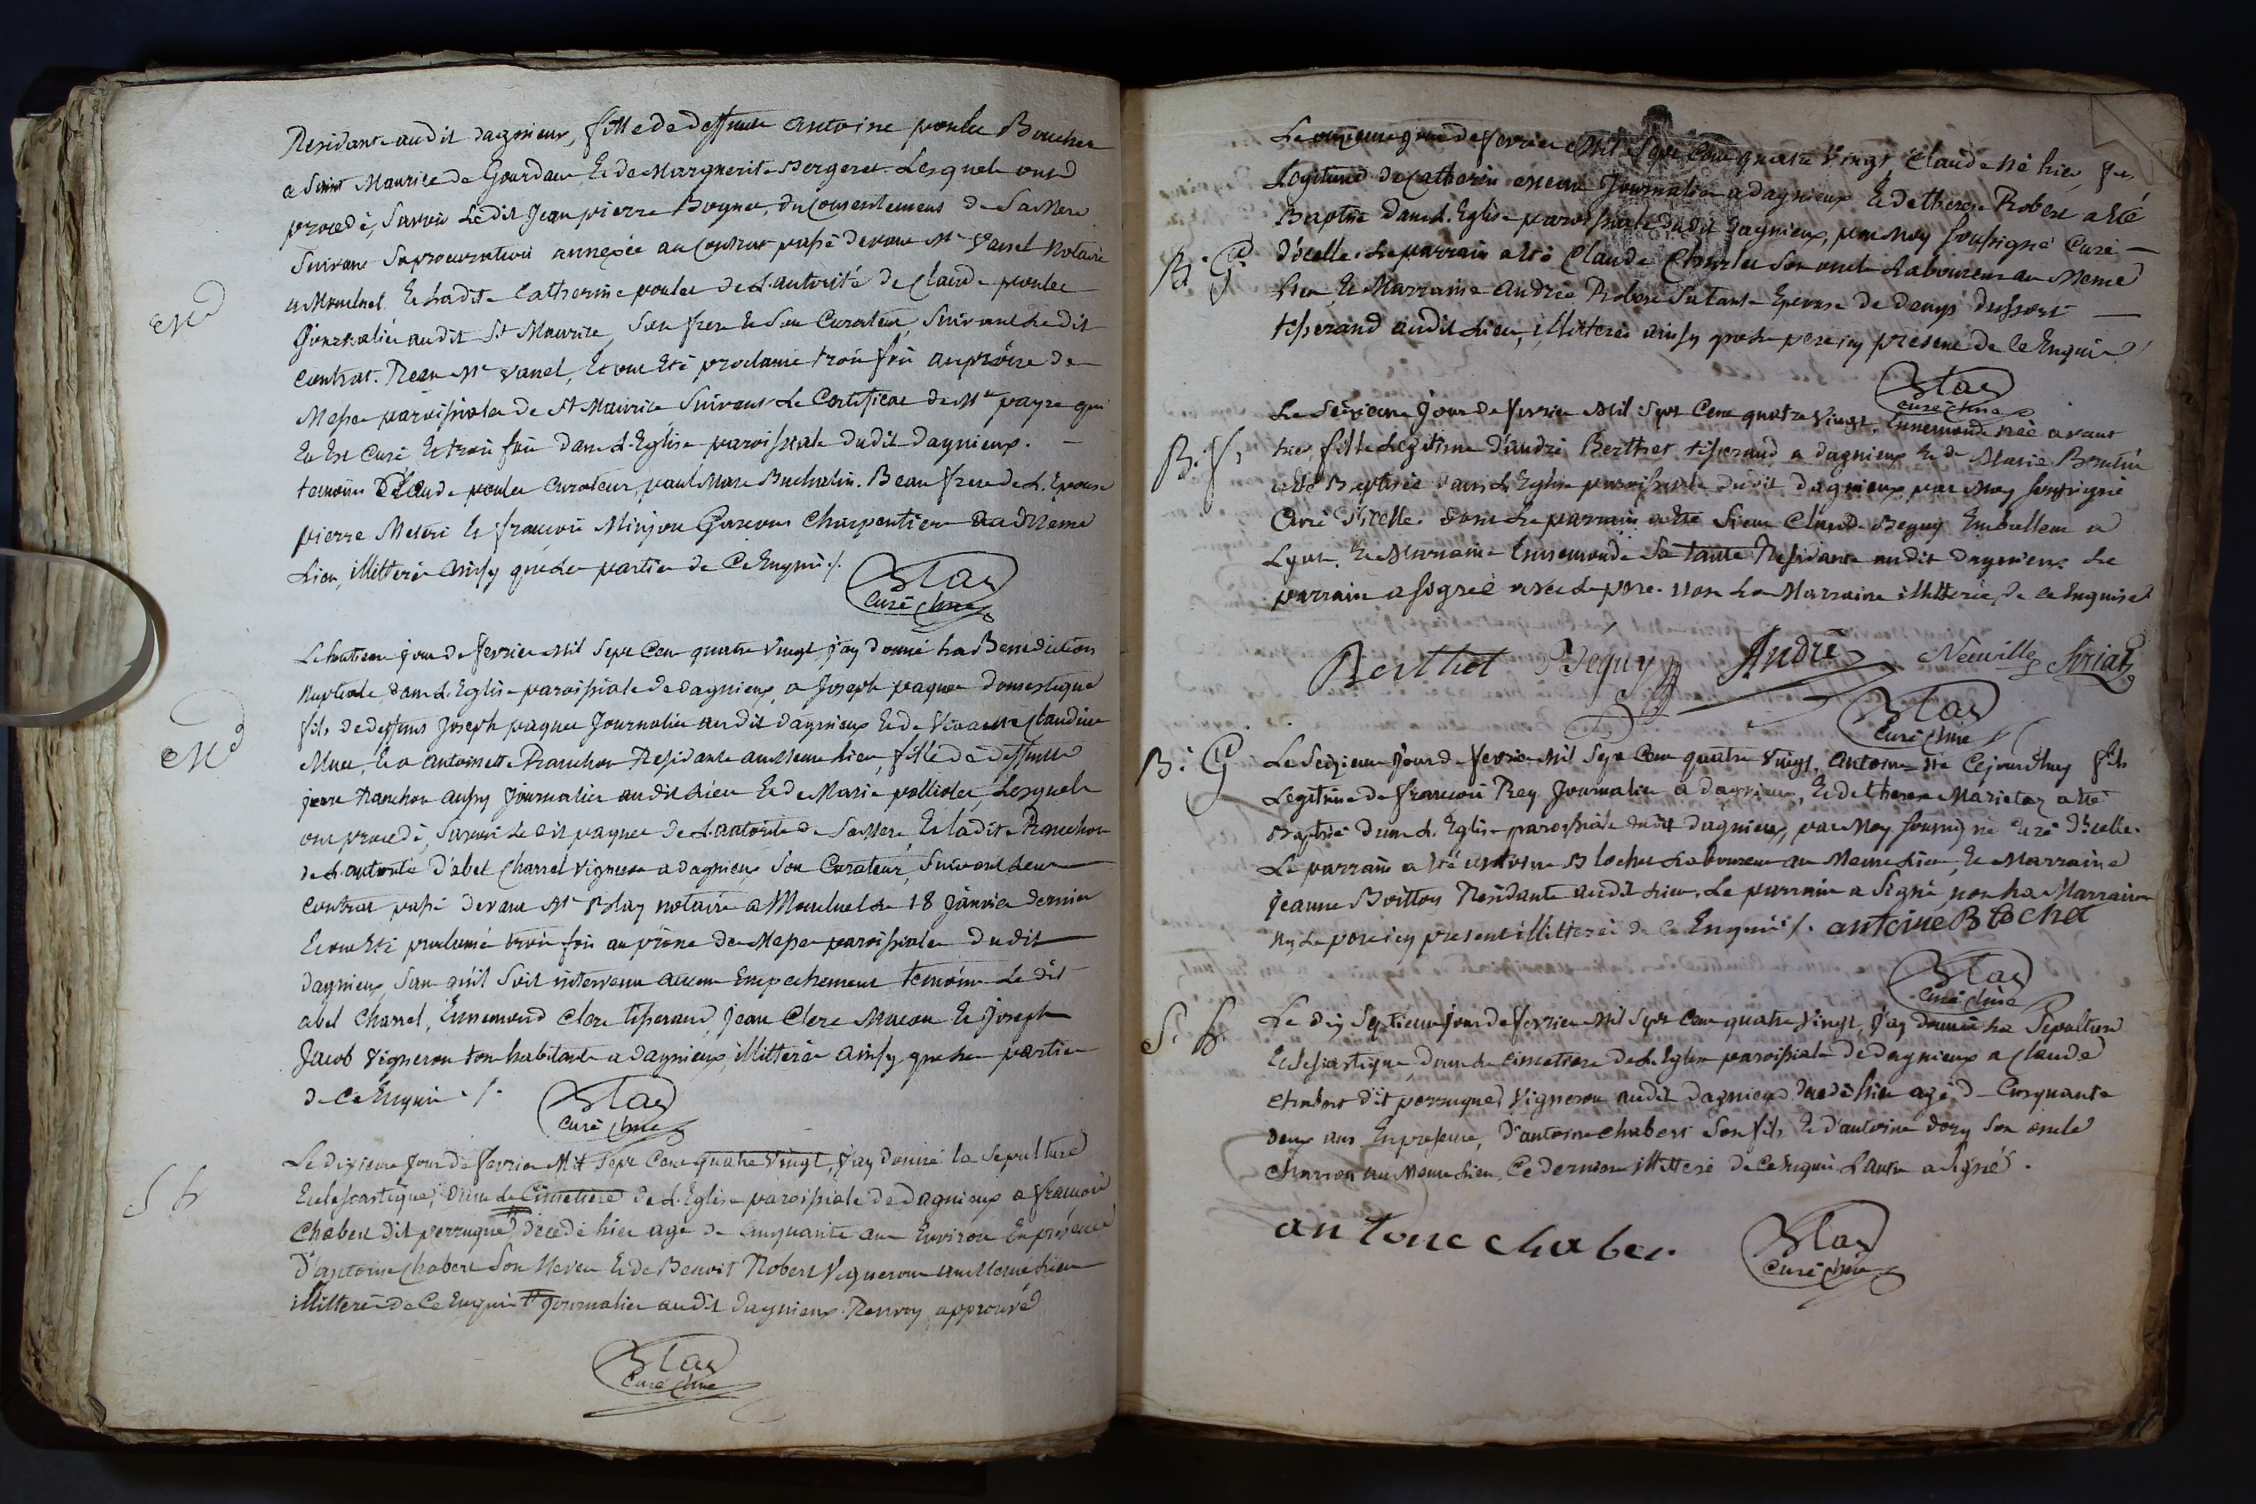 Residante audit dagnieux, fille de deffunte antoine poulet Boucher
a Saint Maurice de Gourdans Et de Marguerite Bergeret. Lesquels ont
procedé, Savoir Ledit Jean pierre Bognet, du Consentement de Sa Mere
Suivant Sa procuration annexée au Contrat passé devant Mr Vanel Notaire
a Montluel Et Ladite Catherine poulet de L'autorité de Claude poulet
Journalier audit St Maurice, Son frere Et Son Curateur, Suivant Ledit
Contrat. Reçu Mr Vanel, Et ont Eté proclamé trois fois au prône de
Messe paroissiale de St Maurice Suivant Le Certificat de Mr payre qui
En Est Curé Et trois fois dans L'Eglise paroissiale dudit dagnieux. —
temoins Claude poulet Curateur, paul Marc Buchalin. Beau frere de L'Epouse
pierre Meteri Et françois Minjon Garcons Charpentier au Meme
Lieu, illitteré Ainsy que Les parties de Ce Enquis /.
Blay
Curé
Md
Le huitieme jour de fevrier Mil Sept Cent quatre Vingt j'ay donné La Benediction
Nuptiale, dans L'Eglise paroissiale de dagnieux, a Joseph paquet domestique
fils de deffunt Joseph paquet Journalier audit dagnieux Et de Vivante Claudine
Muet, Et a antoinette Ranchon Residante au Meme Lieu, fille de deffunt
jean Ranchon aussy Journalier audit Lieu Et de Marie polliolet, Lesquels
ont procedé, Savoir Ledit paquet de L'autorité de Sa Mere, Et ladite Ranchon
de L'autorité d'abel Charrel Vigneron a dagnieux Son Curateur, Suivant Leur
Contrat passé devant Mr Blay notaire a Montluel Le 18 janvier dernier
Et ont Eté proclamé trois fois au prône de Messe paroissiale dudit
dagnieux, San qu'il Soit intervenu aucun Empechement temoins Le dit
abel Charrel, Ennemond Clere tisserand, jean Clere Macon Et joseph
Jacob Vigneron tous habitants a dagnieux, illitteré Ainsy que Les parties
de Ce Enquis. /.
Blay
Curé
Md
Le dixieme jour de fevrier Mil Sept Cent quatre Vingt, j'ay donné la Sepulture
Eclesiastique, dans Le Cimetiere de L'Eglise paroissiale de dagnieux a françois
Chabert dit perruquet # decedé hier agé de Cinquante ans Environ En présence
d'antoine Chabert Son Neveu Et de Benoit Robert Vigneron au Meme Lieu
illitteré de Ce Enquis # Journalier audit dagnieux. Renvoy approuvé
Blay
Curé
S. h
Le onzieme jour de fevrier Mil Sept Cent quatre Vingt, Claude Né hier, fils
Legitime de Catherin Journalier a dagnieux Et de therese Robert a Eté
Baptisé dans L'Eglise paroissiale dudit dagnieux, par Moy Soussigné Curé —
d'icelle. Le parrain a Eté Claude Charles Son oncle Laboureur au Meme
Lieu, Et Marraine andrée Robert Sa tante Epouse de denys dussort —
tisserand audit Lieu, illitterés ainsy que Le pere icy présent de Ce Enquis
Blay
Curé
B. G.
Le Seizieme Jour de fevrier Mil Sept Cent quatre Vingt, Ennemonde née avant
hier, fille Legitime d'andré Berthet tisserand a dagnieux Et de Marie
a Eté Baptisée dans L'Eglise paroissiale dudit dagnieux par Moy Soussigné
Curé d'icelle. dont Le parrain a Eté Sieur Claude Beguy Emballeur a
Lyon, Et Marraine Ennemonde Sa tante Residante audit dagnieux Le
parrain a Signé avec Le pere. Non La Marraine illitterée, de Ce Enquise
Berthet Béguy André Neuville Siriat
Blay
Curé
B. f.
Le Seizieme Jour de fevrier Mil Sept Cent quatre Vingt, antoine né Cejourdhuy fils
Legitime de françois Rey Journalier a dagnieux, Et de therese Marietaz a Eté
Baptisé dans L'Eglise paroissiale dudit dagnieux, par Moy Soussigné Curé d'icelle.
Le parrain a Eté antoine Blochet Laboureur au Meme Lieu, Et Marraine
Jeanne Boitton Résidante audit Lieu. Le parrain a Signé, non La Marraine
Ny Le pere icy présent illitteré de Ce Enquis /. antoine Blochet
Blay
Curé
B. G.
Le dix Septieme jour de fevrier Mil Sept Cent quatre Vingt, j'ay donné La Sepulture
Eclesiastique, dans Le Cimetiere de L'Eglise paroissiale de dagnieux a Claude
Chabert dit perruquet Vigneron audit dagnieux decedé hier agé de Cinquante
deux ans En presence, d'antoine Chabert Son fils Et d'antoine dory Son oncle
Charron au Meme Lieu, Ce dernier illitteré de Ce Enquis L'autre a Signé.
antoine chaber.
Blay
Curé
S. h.